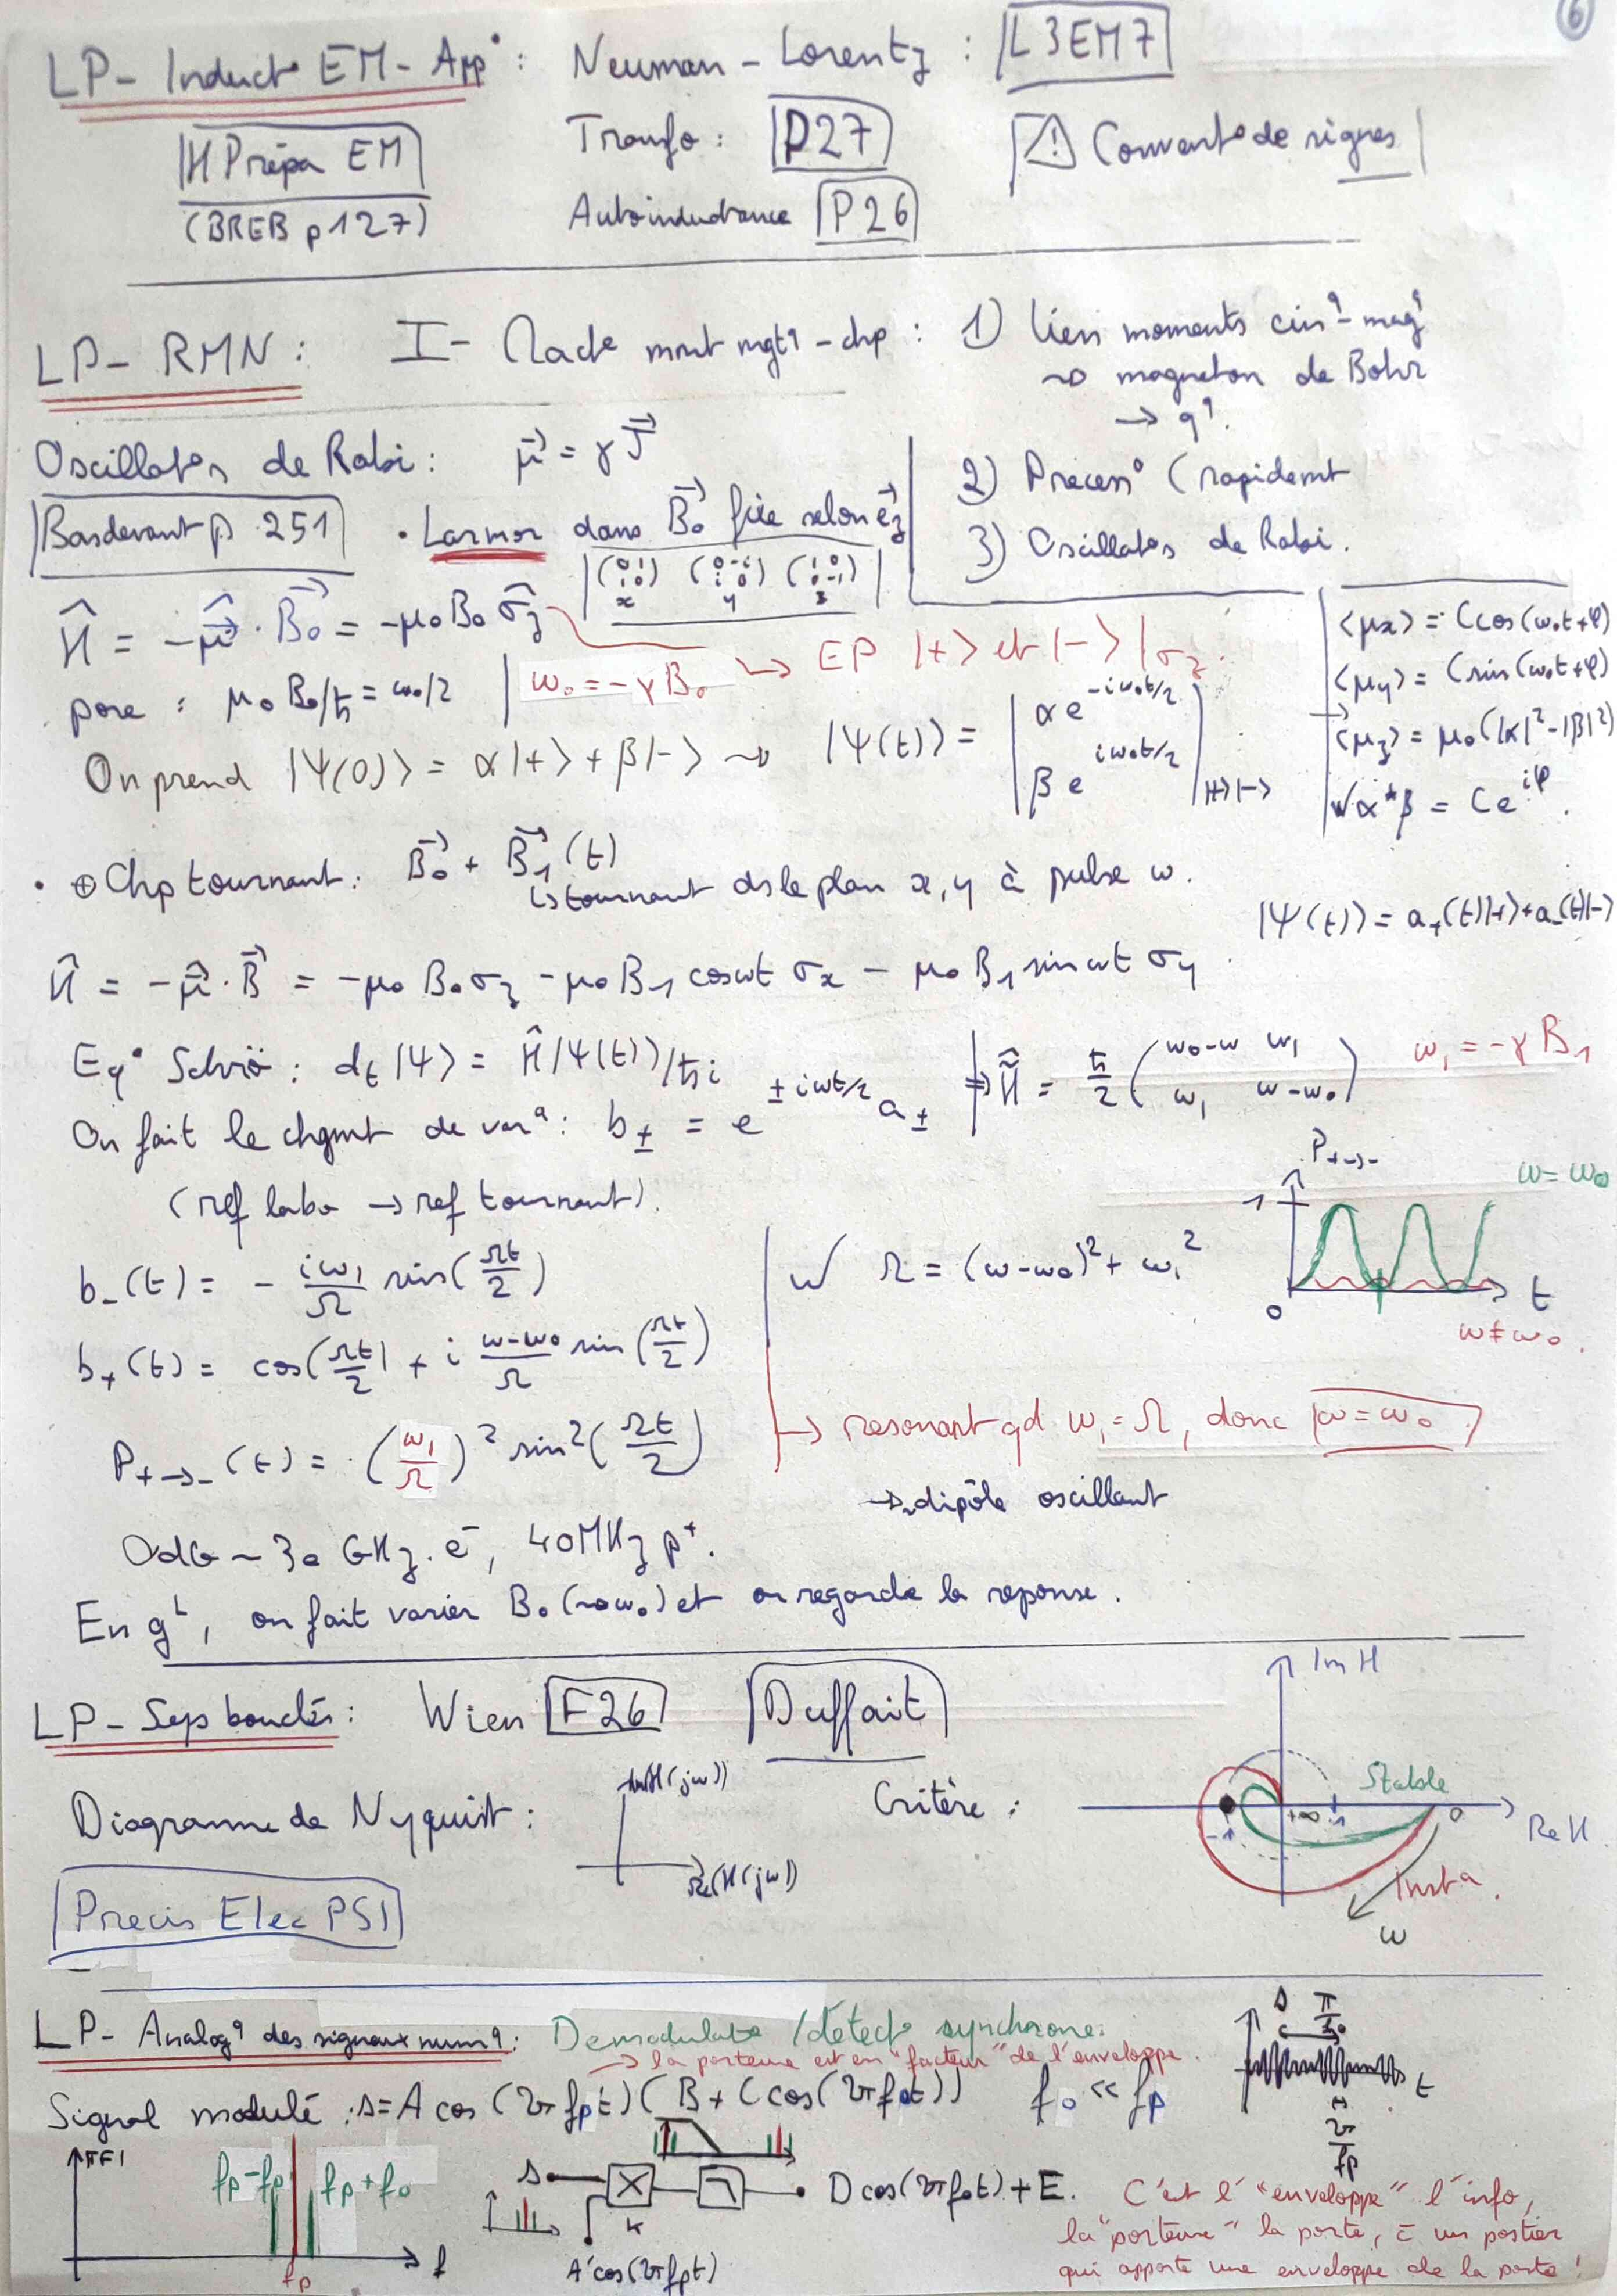 6
LP- Induct° EM- App° : Neuman - Lorentz : L3EM7
H Prépa EM
(BREB p127)
Transfo : P27
⚠ Convent° de signes
Autoinductance P26
LP- RMN :
I- mmt mgtq - chp :
1) Lien moments cinq - magq
⤳ magneton de Bohr
→ qq.
2) Precess° (rapidemt
3) Oscillat°s de Rabi.
Oscillat°s de Rabi : μ⃗ = γ J⃗
Basdevant p 251
• Larmor dans B⃗₀ fixe selon e⃗z
(0 1; 1 0) x (0 -i; i 0) y (1 0; 0 -1) z
Ĥ = - μ̂⃗ · B⃗₀ = -μ₀ B₀ σ̂z ↳ EP |+> et |-> | σz.
pose : μ₀ B₀/ħ = ω₀/2 | ω₀ = -γ B₀
On prend |Ψ(0)⟩ = α|+⟩ + β|-⟩ ⤳ |Ψ(t)⟩ = | α e^{-iω₀t/2} β e^{iω₀t/2} |+⟩|-⟩
⟨μx⟩ = C cos(ω₀t+φ)
⟨μy⟩ = C sin(ω₀t+φ)
→ ⟨μz⟩ = μ₀(|α|²-|β|²)
w/ α*β = C e^{iφ}.
• ⊕ Chp tournant : B⃗₀ + B⃗₁(t)
↳ tournant ds le plan x, y à pulse ω.
|Ψ(t)⟩ = a₊(t)|+⟩+a₋(t)|-⟩
Ĥ = - μ̂⃗ · B⃗ = -μ₀ B₀ σz - μ₀ B₁ cosωt σx - μ₀ B₁ sin ωt σy.
Eq° Schrö : dt |Ψ⟩ = Ĥ |Ψ(t)⟩/ħi
⇒ H̃̂ = ħ/2 (ω₀-ω ω₁; ω₁ ω-ω₀) ω₁ = -γ B₁
On fait le chgmt de var° : b± = e^{± iωt/2} a±
(ref labo → ref tournant).
P₊→₋
1
0
t
ω = ω₀
ω ≠ ω₀.
b₋(t) = - iω₁/Ω sin(Ωt/2)
w/ Ω = (ω-ω₀)² + ω₁²
b₊(t) = cos(Ωt/2) + i (ω-ω₀)/Ω sin(Ωt/2)
P₊→₋(t) = (ω₁/Ω)² sin²(Ωt/2)
↳ resonant qd ω₁ = Ω, donc ω = ω₀
→ dipôle oscillant
OdG ~ 30 GHz. e⁻, 40MHz p⁺.
En gᴸ, on fait varier B₀ (⤳ω₀) et on regarde la reponse.
LP- Sys bouclés : Wien F26 Duffait
Diagramme de Nyquist :
Im(H(jω))
Re(H(jω))
Critère :
Im H
Re H
Stable
Insta.
-1
+∞
1
0
ω
Precis Elec PSI
LP- Analogq des signaux numq : Demodulat° / detect° synchrone :
→ la porteuse est en "facteur" de l'enveloppe.
Signal modulé : s = A cos(2π fp t)(B + C cos(2π f₀ t)) f₀ << fp
s
π/f₀
t
2π/fp
|TF|
fp-f₀
fp+f₀
fp
f
s
X
K
A'cos(2π fp t)
D cos(2π f₀ t) + E.
C'est l' "enveloppe" l'info,
la "porteuse" la porte, = un postier
qui apporte une enveloppe de la poste !